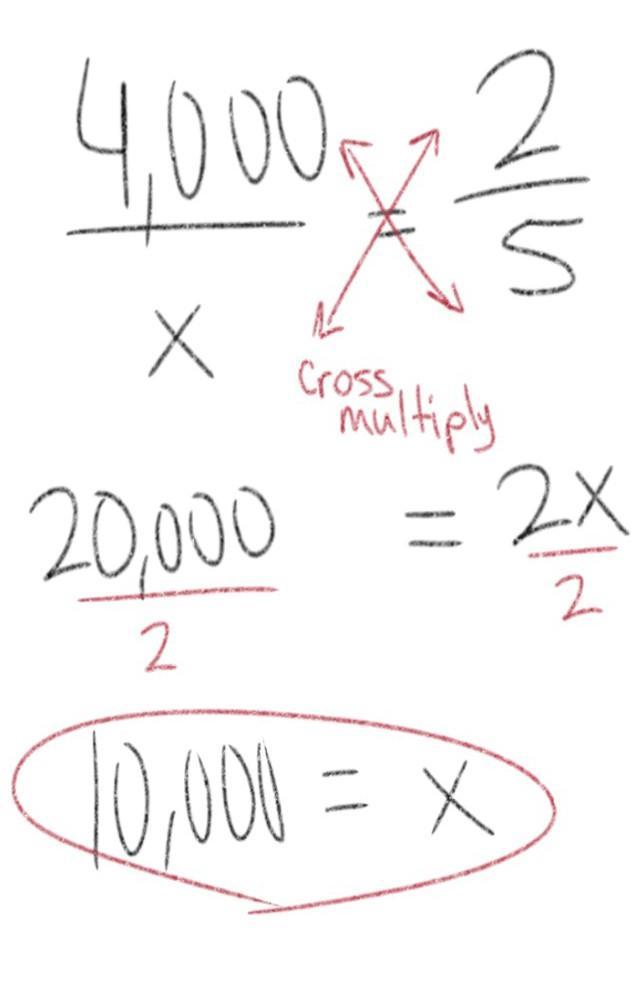 4,000 = 2
x 5
Cross
multiply
20,000 = 2x
2 2
10,000 = x